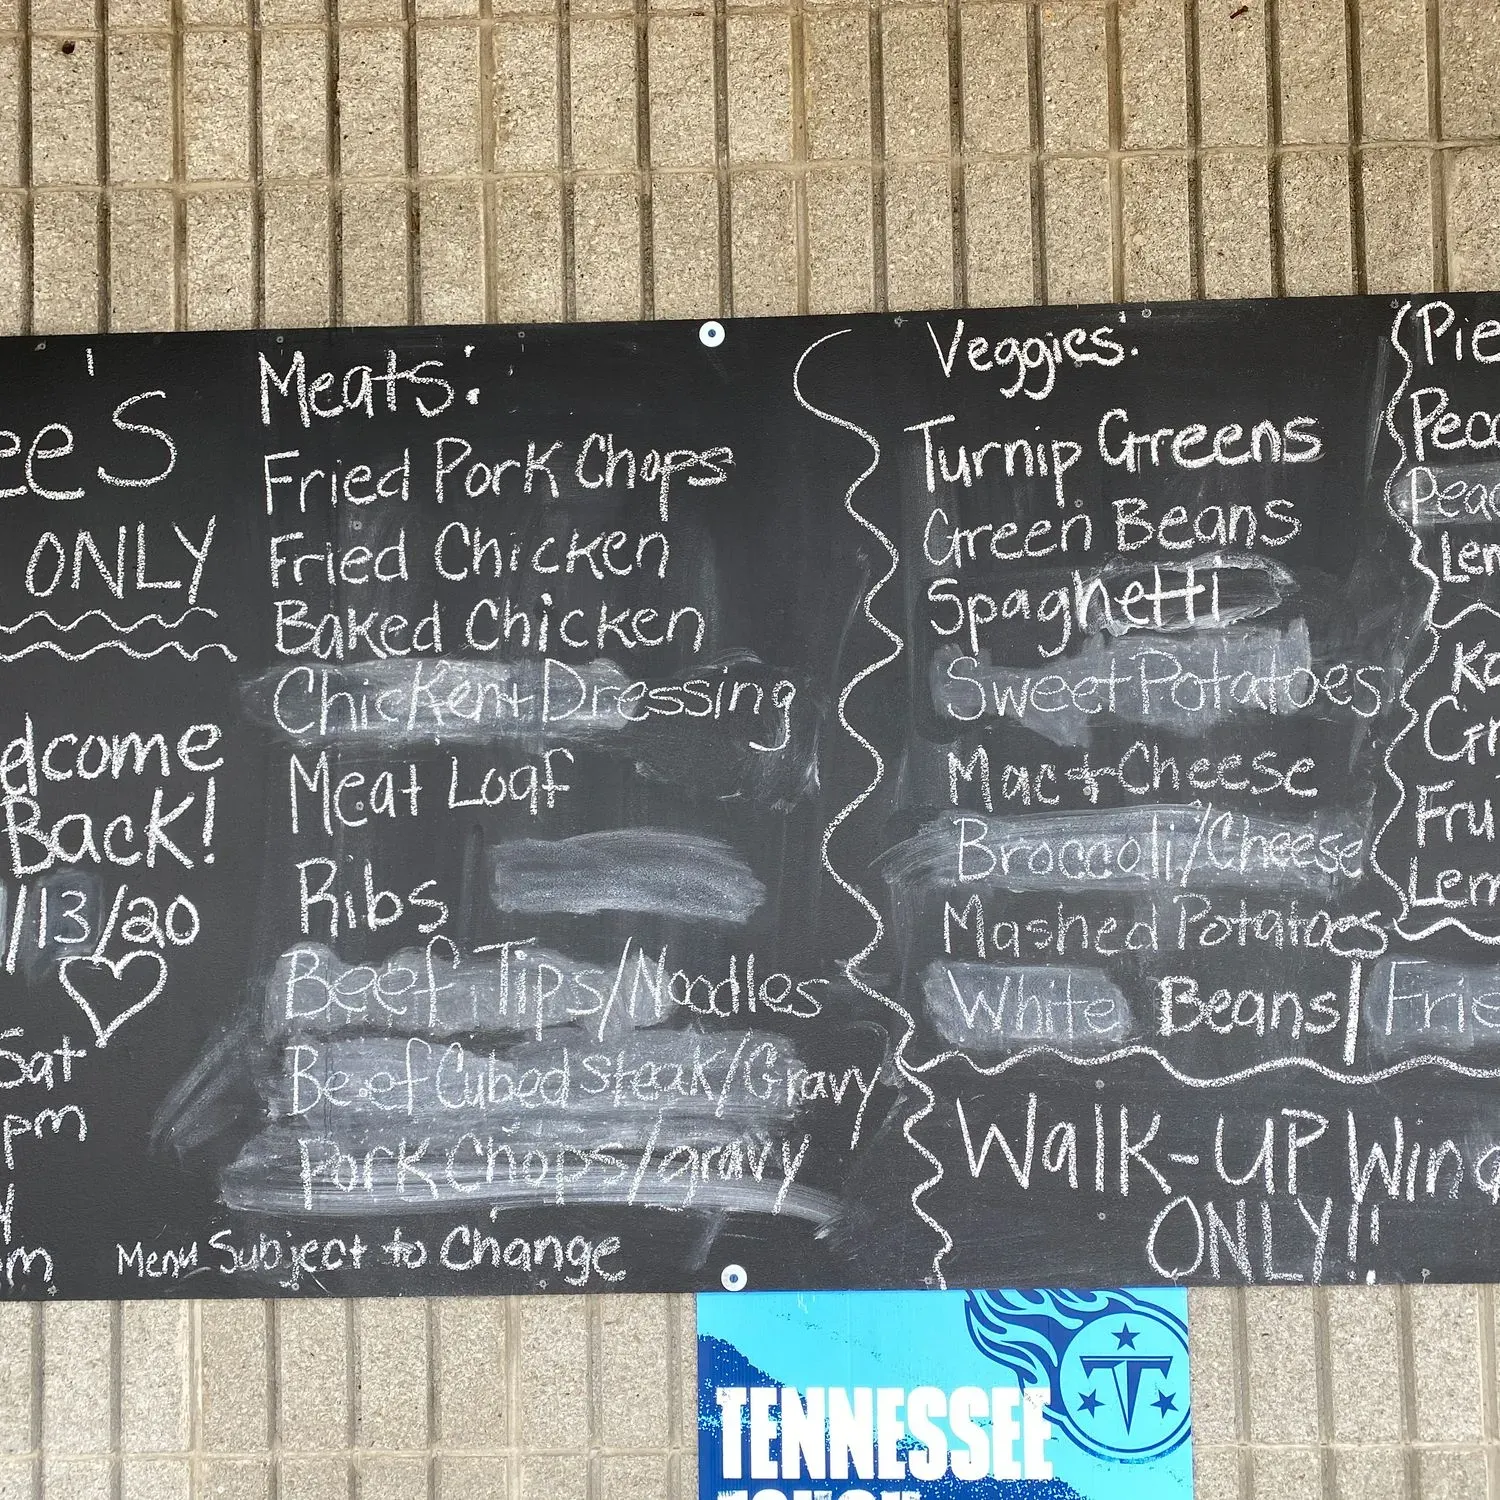 ee's
ONLY
elcome
Back!
/13/20
Sat
pm
m
Meats:
Fried Pork Chops
Fried Chicken
Baked Chicken
Chicken + Dressing
Meat Loaf
Ribs
Beef Tips/Noodles
Beef Cubed Steak/Gravy
Pork Chops/gravy
Menu Subject to Change
Veggies:
Turnip Greens
Green Beans
Spaghetti
Sweet Potatoes
Mac + Cheese
Broccoli/Cheese
Mashed Potatoes
White Beans | Frie
Walk-UP Wind
ONLY!!
Pie
Peac
Peac
Lem
Ko
Gr
Fru
Lem
TENNESSEE
T